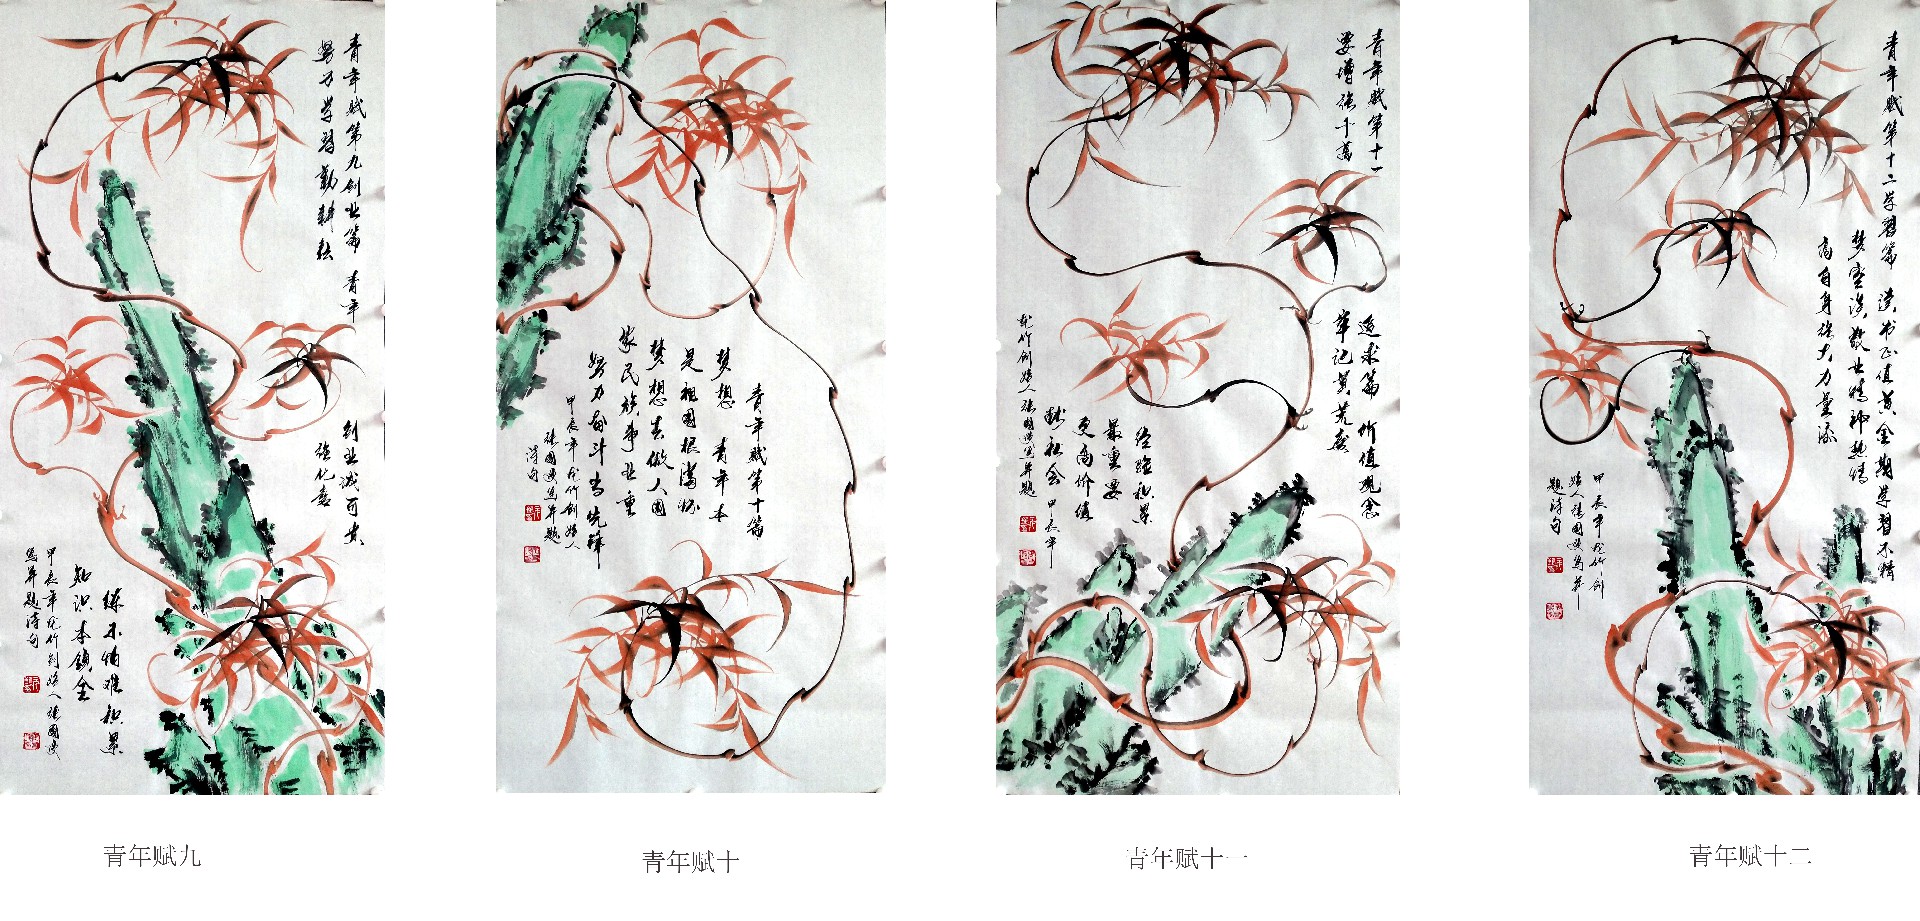 青年赋第九创业篇 青年
努力学习勤耕耘
创业诚可贵
强化意
练不怕难积累
知识本领全
甲辰年龙竹创始人张国
写并题诗句
青年赋第十篇
梦想 青年本
是祖国根满脉
梦想去做人国
家民族事业重
努力奋斗当先锋
甲辰年龙竹创始人
张国 写并题
诗句
青年赋第十一
要增强千万
追求篇 价值观念
牢记莫荒度
经验积累
最重要
更高价值
献社会 甲辰年
龙竹创始人张国 写并题
青年赋第十二学习篇 读书正值黄金期学习不精
梦空谈敬业精神热情
高自身强大力量添
甲辰年龙竹创
始人张国 写并
题诗句
青年赋九
青年赋十
青年赋十一
青年赋十二